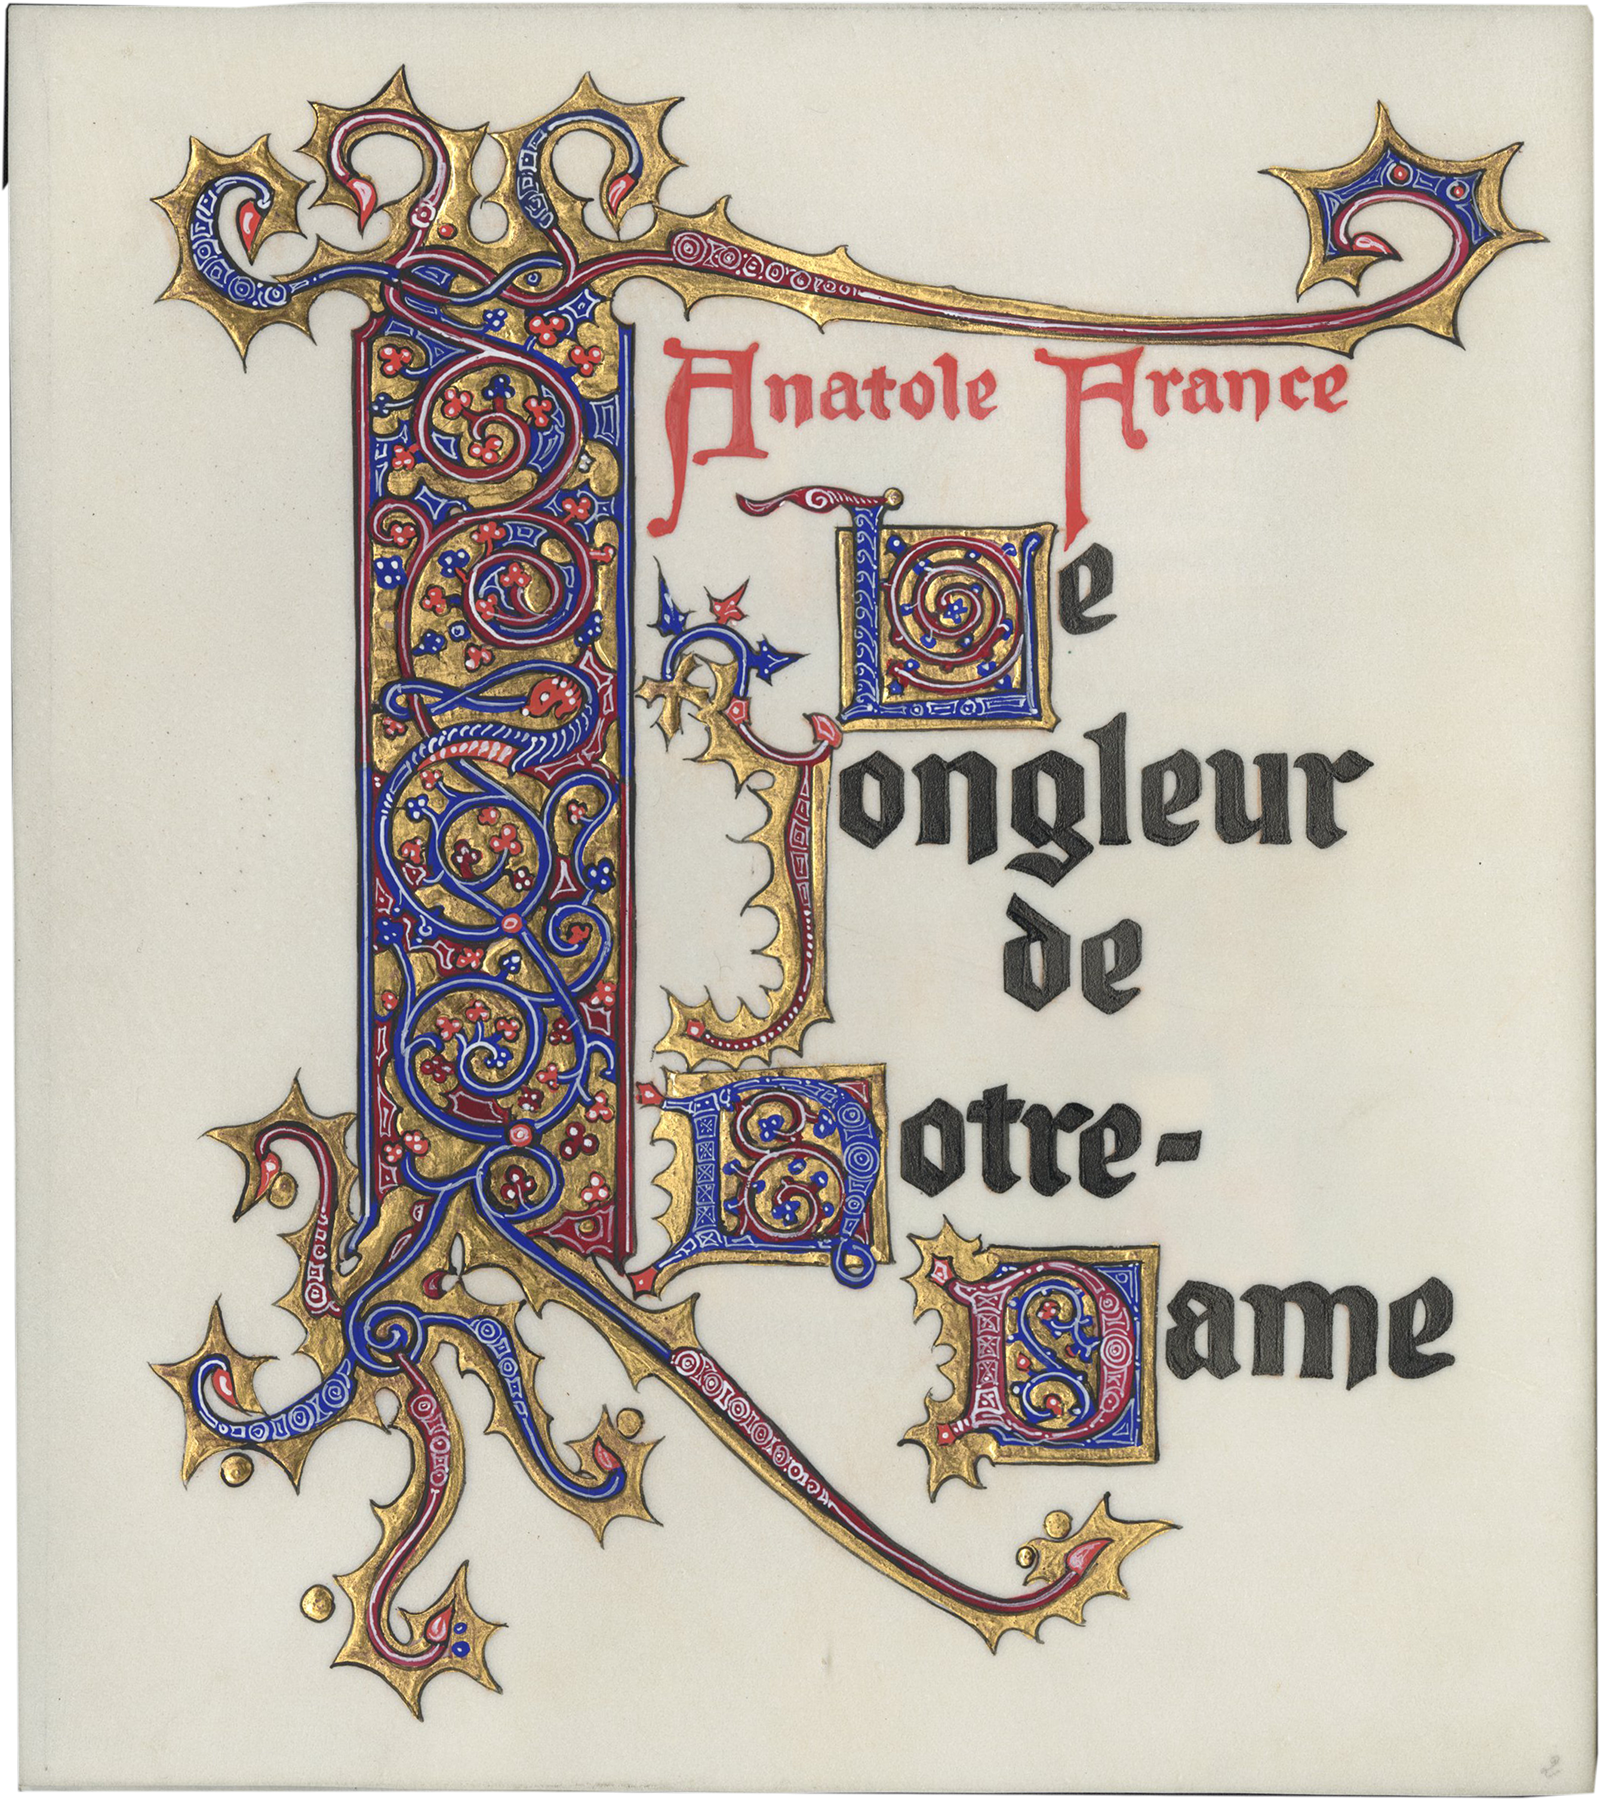 Anatole France
Le
Jongleur
de
Notre-
Dame